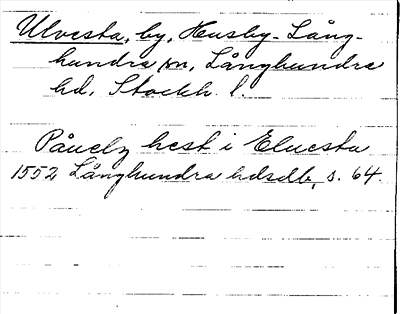 Ulvesta, by, Husby-Lång-
hundra sn, Långhundra
hd, Stockh. l.
Påuelz hest i Eluesta
1552 Långhundra hdsdb, s. 64.